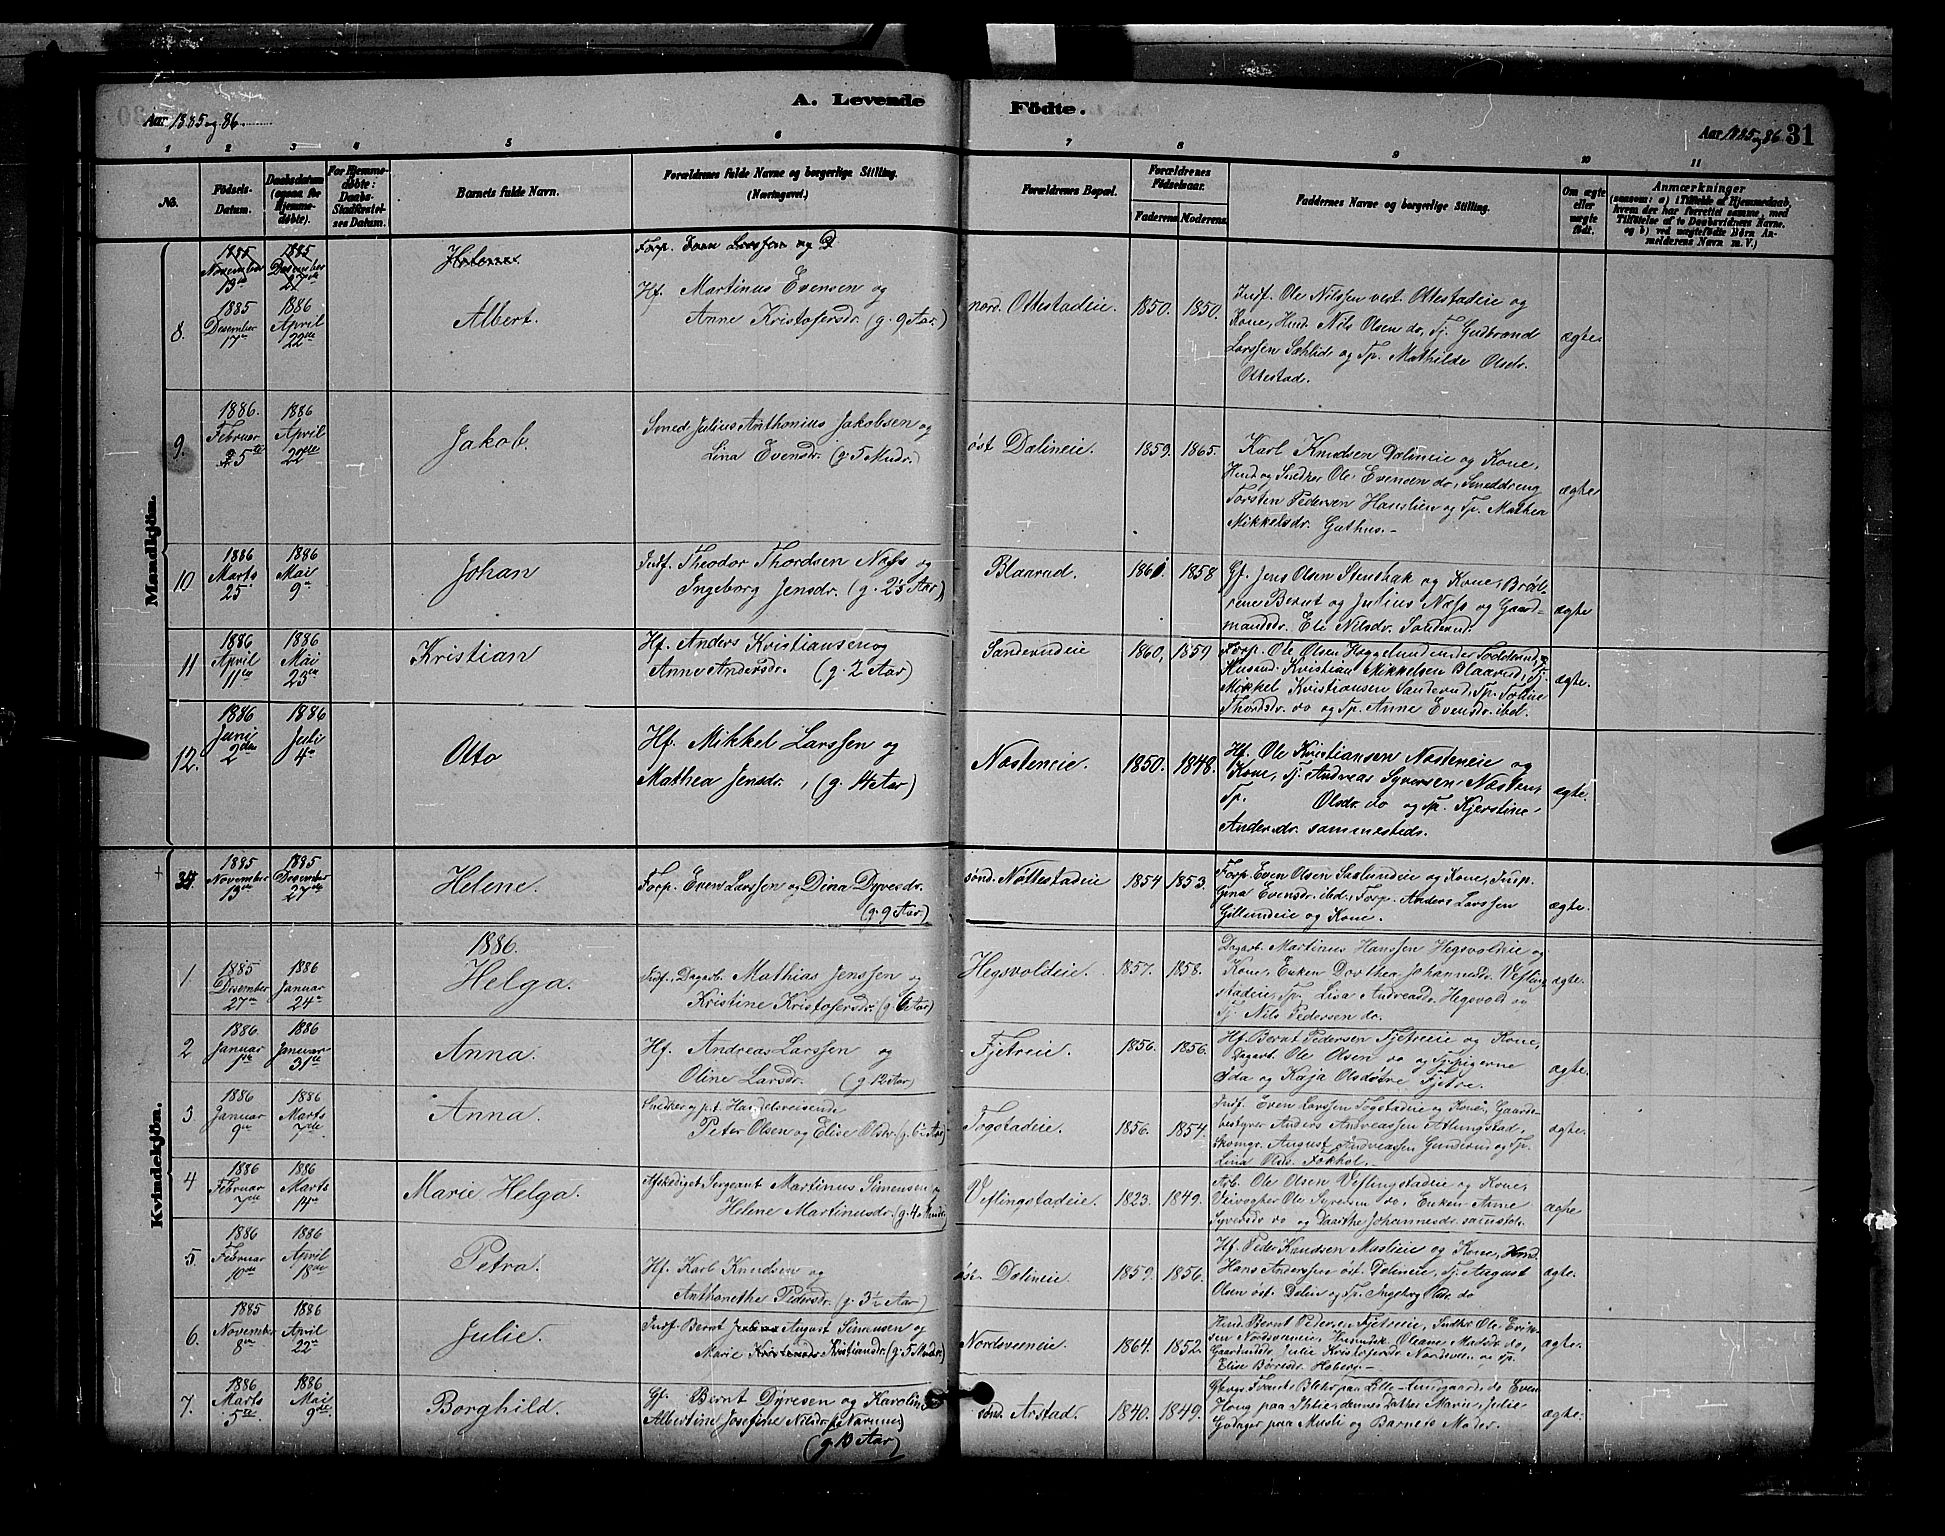 A. Levende Födte.
Aar 1885 og 86
Aar 1885 og 86 31
1 2 3 4 5 6 7 8 9 10 11
No.
Födsels-Datum.
Daabsdatum (ogsaa for Hjemmedöbte).
For Hjemmedöbte: Daabs-Stadfæstelses Datum.
Barnets fulde Navn.
Forældrenes fulde Navne og borgerlige Stilling. (Næringsvei.)
Forældrenes Bopæl.
Forældrenes Födselsaar.
Faderens. Moderens.
Faddernes Navne og borgerlige Stilling.
Om ægte eller uægte födt.
Anmærkninger
(saasom: a) i Tilfælde af Hjemmedaab, hvem der har forrettet samme, med Tilföielse af to Daabsvidners Navne, og b) ved uægtefödte Börn Anmelderens Navn m. V.)
Mandkjön.
1885 November 13de 1885 Desember 27de Helene Forp. Even Larssen og D
8. 1885 Desember 17de 1886 April 22de Albert. Hf. Martinus Evensen og
Anne Kristofersdr. (g. 9 Aar.) nord. Ottestadeie. 1850. 1850.
Indf. Ole Nilssen vest. Ottestadeie og
Kone, Husd. Nils Olsen do, Tj. Gudbrand
Larssen Sæhlid og Tp. Mathilde Olsdr.
Ottestad. ægte
9. 1886. Februar 25de 1886 April 22de Jakob. Smed Julius Anthonius Jakobsen og
Lina Evensdr. (g. 5 Mndr.) øst Dalineie. 1859. 1865.
Karl Knudsen Dalineie og Kone,
Husd og Snedker Ole Evensen do, Smeddreng
Torsten Pedersen Hanslien og Tp. Mathea
Mikkelsdr. Guthus. ægte
10 1886 Marts 25 1886 Mai 9de Johan Indf. Theodor Thordsen Næss og
Ingeborg Jensdr. (g. 2½ Aar) Blaarud. 1861. 1858
Gf. Jens Olsen Stenshak og Kone, Brødrene
Bernt og Julius Næss og Gaardmandsdr.
Eli Nilsdr. Sanderud. ægte
11 1886 April 11te 1886 Mai 23de Kristian Hf. Anders Kristiansen og
Anne Andersdr. (g. 2 Aar) Sanderudeie 1860, 1859
Forp. Ole Olsen Haggelund under Todderud, og
Husmd. Kristian Mikkelsen Blaarud, Tj.
Mikkel Kristiansen Sanderud, Tp. Toline
Thordsdr. do og Tp. Anne Evensdr. ibd. ægte.
12. 1886 Juni 2den 1886 Juli 4de Otto Hf. Mikkel Larssen og
Mathea Jensdr. , (g. 14 Aar) Næsteneie. 1850. 1848.
Hf. Ole Kristiansen Næsteneie og
Kone, Tj. Andreas Syversen, Næsten,
Tp. Olsdr. do og Tp. Kjerstine
Andersdr. sammesteds. ægte.
+ 34. 1885 November 13de 1885 Desember 27de Helene. Forp. Even Larssen og Dina Dyresdr.
(g. 9 Aar.) sønd. Nøttestadeie 1854 1853.
Forp. Even Olsen Saslundeie og Kone, Insp.
Gina Evensdr. ibd., Forp. Anders Larssen
Gillundeie og Kone. ægte.
Kvindekjön.
1886.
1 1885 Desember 27de 1886 Januar 24de Helga. Indf. Dagarb. Mathias Jenssen og
Kristine Kristofersdr. (g. 6 Aar) Hegsvoldeie. 1857. 1858.
Dagarb. Martinus Hanssen Hegsvoldeie og
Kone, Enken Dorthea Johannesdr. Veflingstadeie,
Tp. Lisa Andreasdr. Hegsvold og
Tj. Nils Pedersen do. ægte.
2 1886 Januar 1ste 1886 Januar 31te Anna. Hf. Andreas Larssen og
Oline Larsdr. (g. 12 Aar) Fjetreie. 1856. 1856.
Hf. Bernt Pedersen Fjetreie og Kone,
Dagarb. Ole Olsen do og Tj. pigerne
Ida og Kaja Olsdøtre Fjetre. ægte.
3 1886 Januar 9de 1886 Marts 7de Anna. Snedker og p.t. Handelsreisende
Peter Olsen og Elise Olsdr. (g. 6½ Aar) Togstadeie. 1856. 1854.
Indf. Even Larssen Togstadeie og Kone, Gaardsbestyrer
Anders Andreassen Atlungstad,
Skomgr. August Andreassen Gunderud og Tp.
Lina Olsdr. Fokhol. ægte.
4 1886 Februar 7de 1886 Marts 14de Marie Helga. Afskediget Sergeant Martinus Simensen og
Helene Martinusdr. (g. 4 Mndr.) Veflingstadeie. 1823. 1849.
Arb. Ole Olsen Veflingstadeie og Kone,
Veivogter Ole Syversen do, Enken Anne
Syversdr do og Dorthe Johannesdr. sammstds. ægte
5. 1886 Februar 10de 1886 April 18de Petra. Hf. Karl Knudsen og
Anthonethe Pedersdr. (g. 3½ Aar) øst. Dalineie 1859. 1856.
Hf. Peder Knudsen Muslieie og Kone, Husd.
Hans Anderssen øst. Dalineie, Tj. August
Olsen øst. Dalin og Tp. Ingeborg Olsdr. do ægte.
6. 1885 November 8de 1886 April 22de Julie. Indf. Bernt Julius August Simensen og
Marie Kristiansdr. (g. 5 Mndr.) Nordsveeneie. 1864. 1852.
Husd. Bernt Pedersen Fjetreie, Snedker Ole Eriksen
Nordsveeneie, Husmdsk. Oleane Matsdr. do,
Gaardmdsdr. Julie Kristofersdr. Nordsveen og Tp.
Elise Børesdr. Hoberg. ægte.
7. 1886 Marts 5te 1886 Mai 9de Borghild. Gf. Bernt Dyresen og Karoline
Albertine Josefine Nilsdr. (
(g. 10 Aar) sønd. Arstad. 1840. 1849.
Frants Blehr paa Lille-, do Even
Hong paa , dennes Datter Marie, Julie
Godager paa Musli og Barnets Moder. ægte.